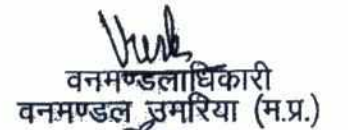 वनमण्डलाधिकारी
वनमण्डल उमरिया (म.प्र.)